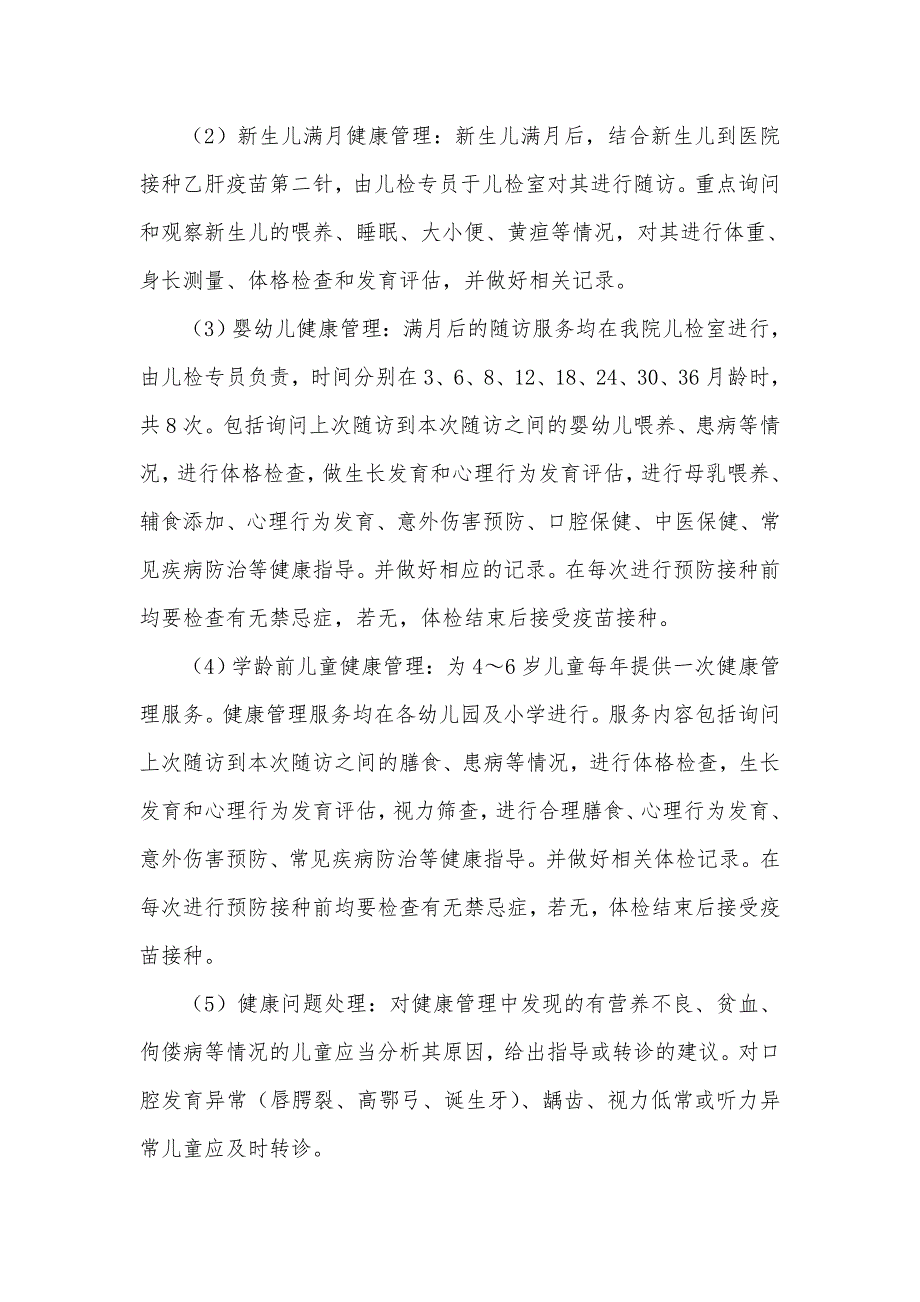 （2）新生儿满月健康管理：新生儿满月后，结合新生儿到医院
接种乙肝疫苗第二针，由儿检专员于儿检室对其进行随访。重点询问
和观察新生儿的喂养、睡眠、大小便、黄疸等情况，对其进行体重、
身长测量、体格检查和发育评估，并做好相关记录。
（3）婴幼儿健康管理：满月后的随访服务均在我院儿检室进行，
由儿检专员负责，时间分别在 3、6、8、12、18、24、30、36 月龄时，
共 8 次。包括询问上次随访到本次随访之间的婴幼儿喂养、患病等情
况，进行体格检查，做生长发育和心理行为发育评估，进行母乳喂养、
辅食添加、心理行为发育、意外伤害预防、口腔保健、中医保健、常
见疾病防治等健康指导。并做好相应的记录。在每次进行预防接种前
均要检查有无禁忌症，若无，体检结束后接受疫苗接种。
（4）学龄前儿童健康管理：为 4～6 岁儿童每年提供一次健康管
理服务。健康管理服务均在各幼儿园及小学进行。服务内容包括询问
上次随访到本次随访之间的膳食、患病等情况，进行体格检查，生长
发育和心理行为发育评估，视力筛查，进行合理膳食、心理行为发育、
意外伤害预防、常见疾病防治等健康指导。并做好相关体检记录。在
每次进行预防接种前均要检查有无禁忌症，若无，体检结束后接受疫
苗接种。
（5）健康问题处理：对健康管理中发现的有营养不良、贫血、
佝偻病等情况的儿童应当分析其原因，给出指导或转诊的建议。对口
腔发育异常（唇腭裂、高鄂弓、诞生牙）、龋齿、视力低常或听力异
常儿童应及时转诊。